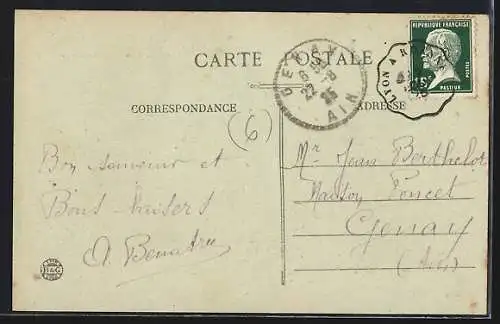 CARTE POSTALE
CORRESPONDANCE
ADRESSE
(6)
REPUBLIQUE FRANÇAISE
15c
POSTES
PASTEUR
LYON A
AIN
22 -8
25
Bon souvenir et
Bons baisers
A.
Mr Jean Berthelot
Maison Poncet
Genay
(Ain)